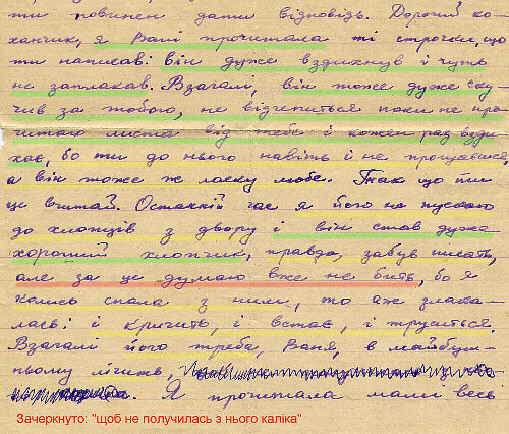 ти повинен дати відповідь. Дорогий ко-
ханчик, я Валі прочитала ті строчки, що
ти написав: він дуже вздихнув і чуть
не заплакав. Взагалі, він тоже дуже ску-
чив за тобою, не відчепиться поки не про-
читаю листа від тебе і кожен раз взди-
хає, бо ти до нього навіть і не прощаєшся,
а він тоже ж ласку любе. Так що ти
це вчитай. Останній час я його не пускаю
до хлопців з двору і він став дуже
хороший хлопчик, правда, забув писать,
але за це думаю вже не бить, бо я
колись спала з ним, то аж зляка-
лась: і кричить, і встає, і труситься.
Взагалі його треба, Ваня, в майбут-
ньому лічить,
Я прочитала мали весь
Зачеркнуто: "щоб не получилась з нього каліка"